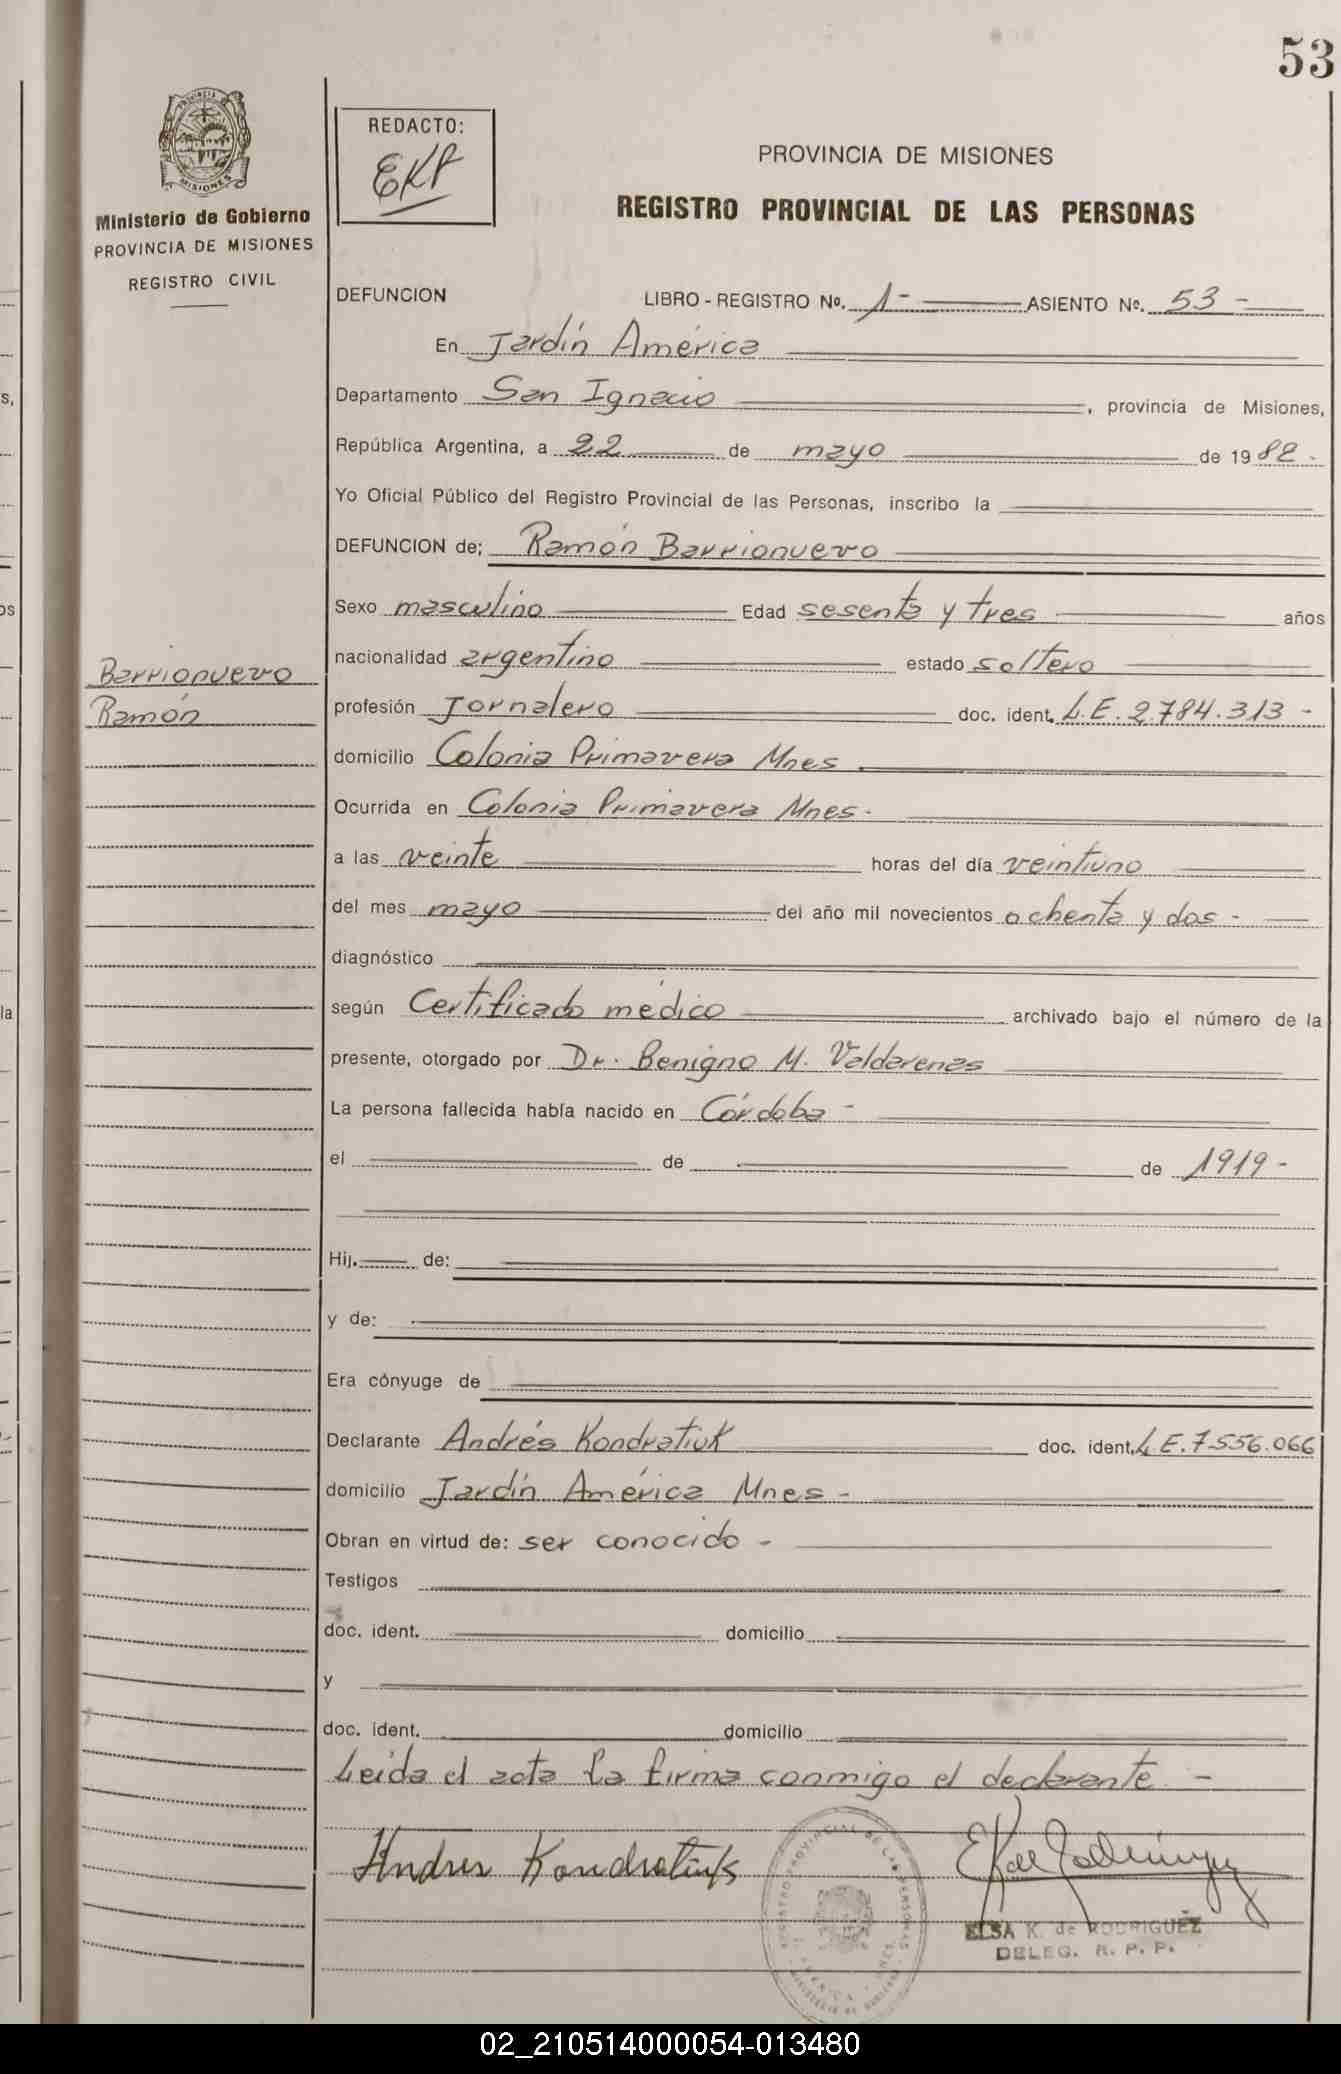 53
PROVINCIA MISIONES
Ministerio de Gobierno
PROVINCIA DE MISIONES
REGISTRO CIVIL
REDACTO:
EKR
PROVINCIA DE MISIONES
REGISTRO PROVINCIAL DE LAS PERSONAS
DEFUNCION LIBRO - REGISTRO Nº. 1- ASIENTO Nº. 53 -
En Jardín América
Departamento San Ignacio, provincia de Misiones,
República Argentina, a 22 de mayo de 1982.-
Yo Oficial Público del Registro Provincial de las Personas, inscribo la
DEFUNCION de: Ramón Barrionuevo
Sexo masculino Edad sesenta y tres años
Barrionuevo
Ramón
nacionalidad argentino estado soltero
profesión Jornalero doc. ident. L.E. 2.784.313 -
domicilio Colonia Primavera Mnes.
Ocurrida en Colonia Primavera Mnes.
a las veinte horas del día veintiuno
del mes mayo del año mil novecientos ochenta y dos -
diagnóstico
según Certificado médico archivado bajo el número de la
presente, otorgado por Dr. Benigno M. Valdarenas
La persona fallecida había nacido en Córdoba -
el de de 1919-
Hij. de:
y de:
Era cónyuge de
Declarante Andrés Kondratiuk doc. ident. L.E. 7.556.066
domicilio Jardín América Mnes -
Obran en virtud de: ser conocido -
Testigos
doc. ident. domicilio
y
doc. ident. domicilio
Leida el acta la firma conmigo el declarante -
Andres Kondratiuk
REGISTRO PROVINCIAL DE LAS PERSONAS
ELSA K. de RODRIGUEZ
DELEG. R. P. P.
02_210514000054-013480